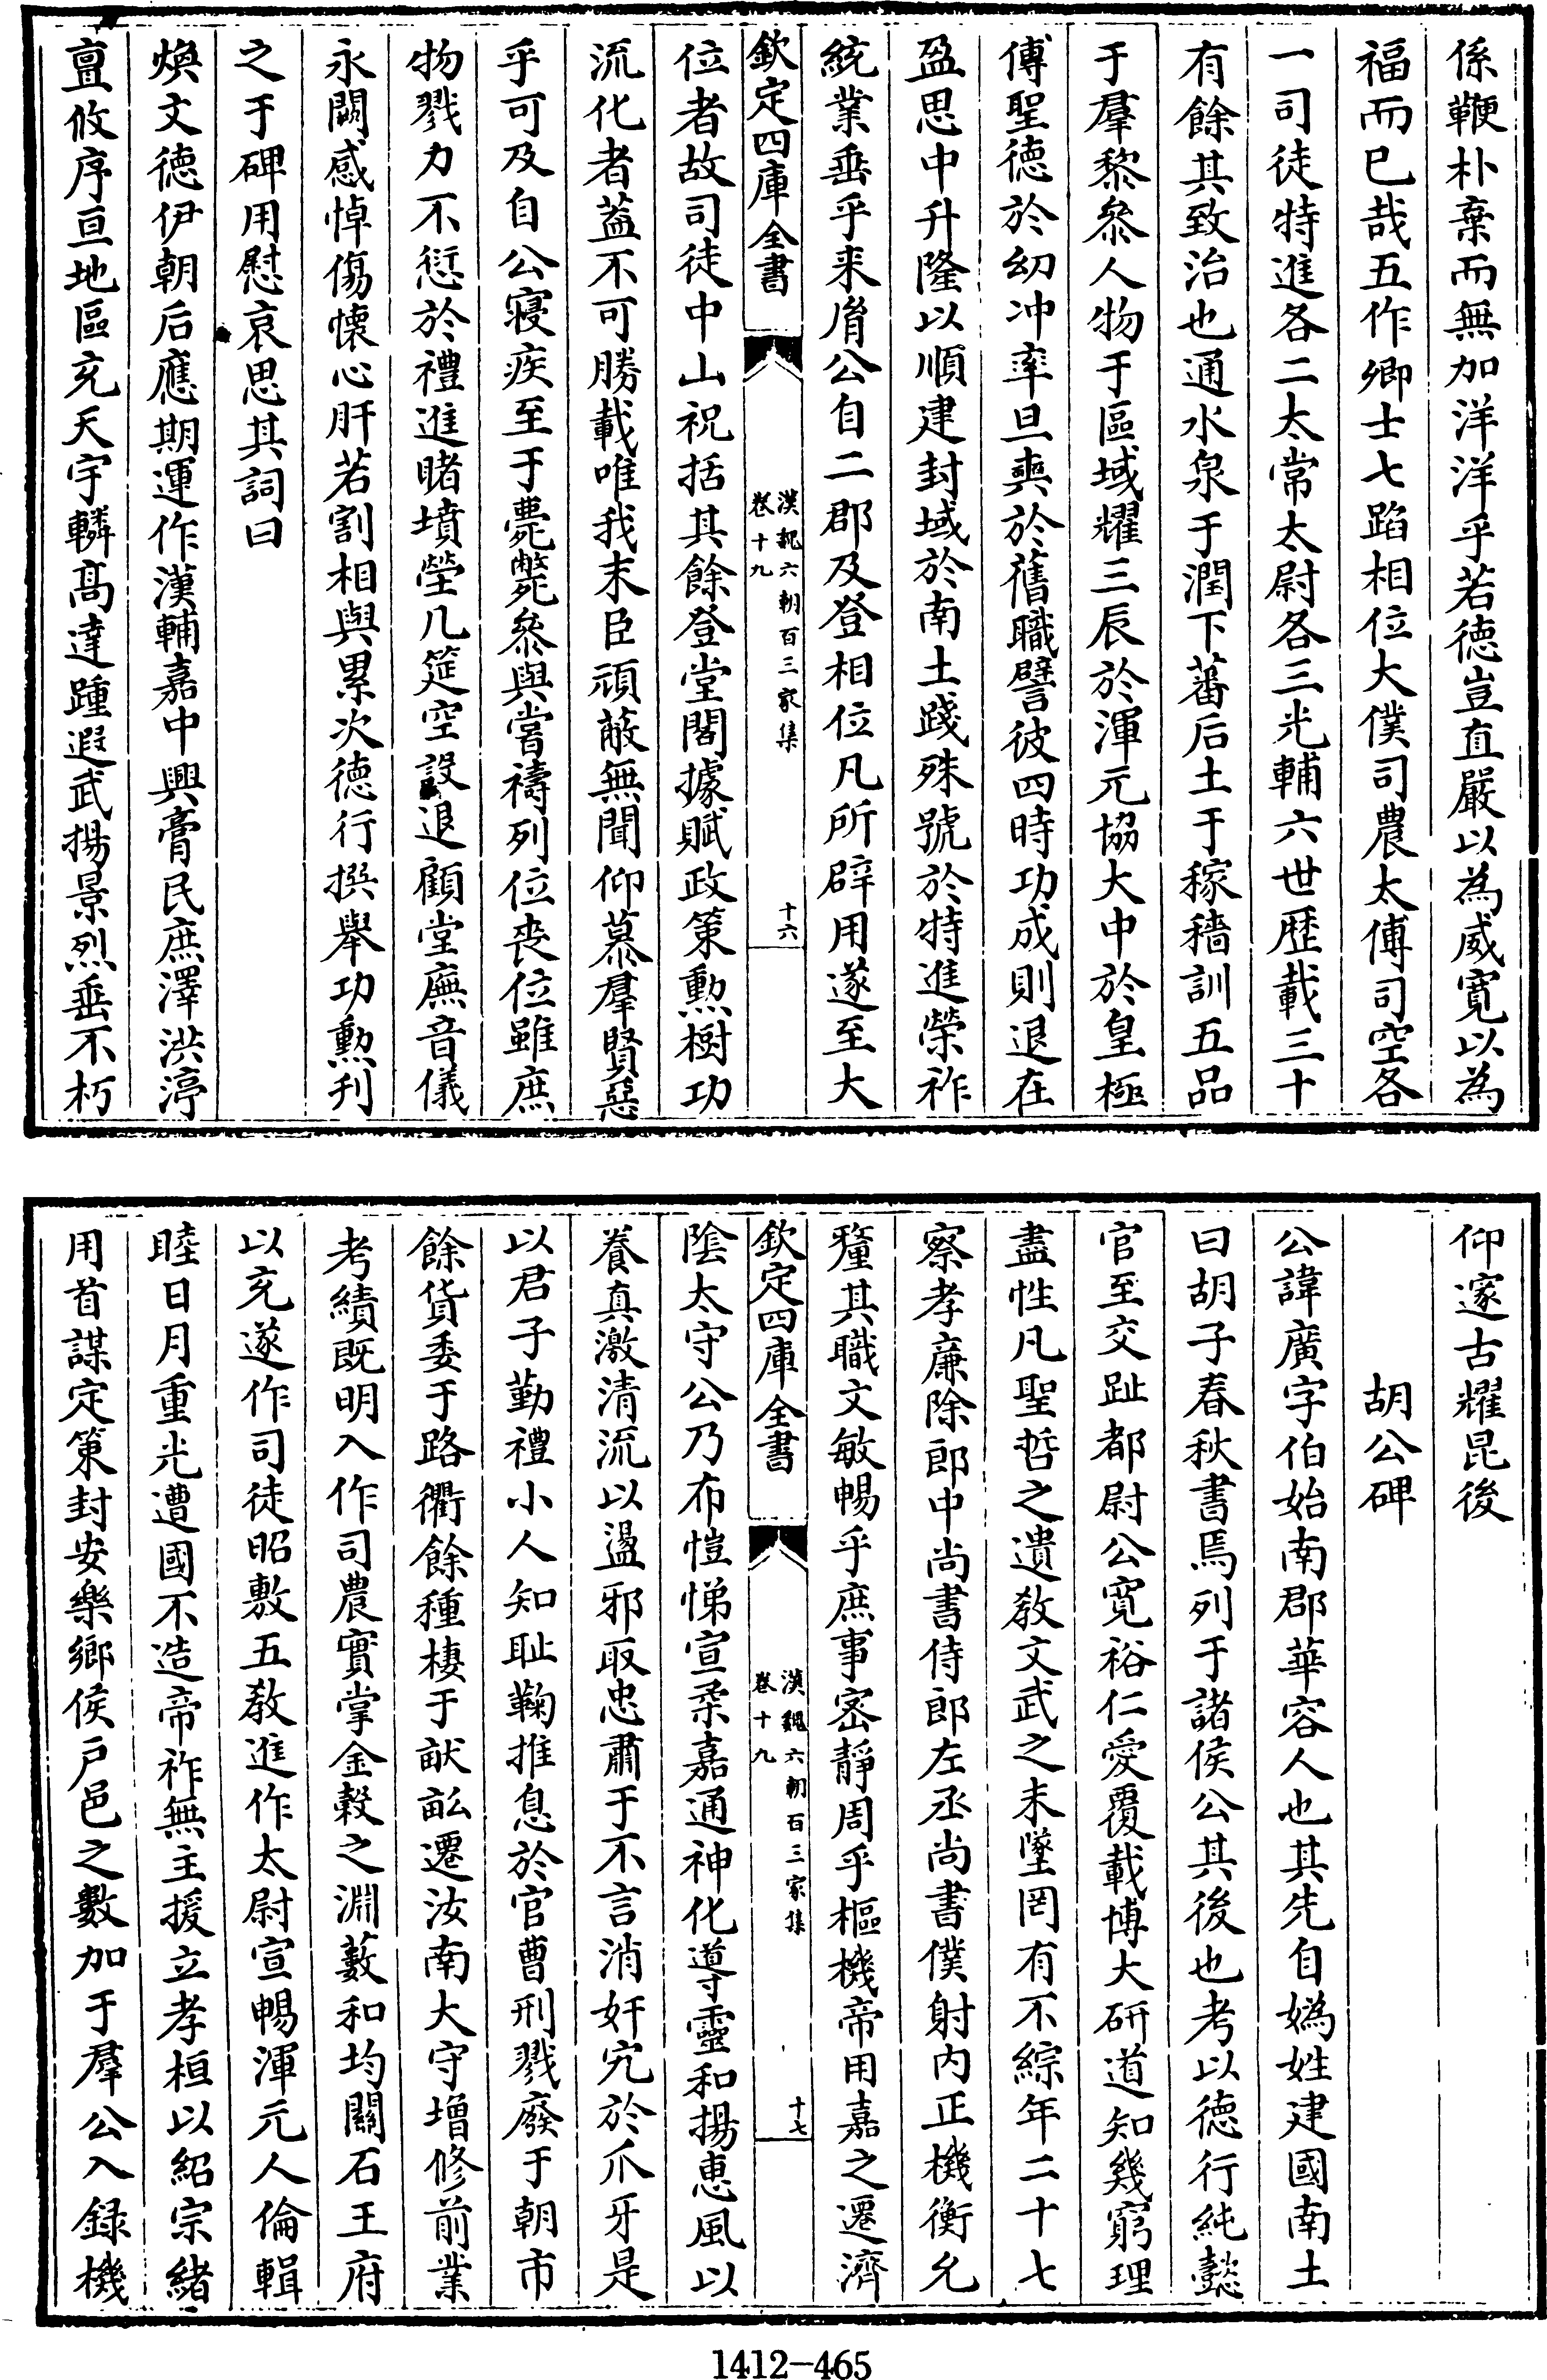 係鞭朴棄而無加洋洋乎若德豈直嚴以為威寛以為
福而已哉五作卿士七蹈相位大僕司農太傅司空各
一司徒特進各二太常太尉各三光輔六世歴載三十
有餘其致治也通水泉于潤下蕃后土于稼穡訓五品
于羣黎叅人物于區域耀三辰於渾元協大中於皇極
傅聖德於幼冲率旦奭於舊職譬彼四時功成則退在
盈思中升隆以順建封域於南土踐殊號於特進榮祚
統業垂乎来胤公自二郡及登相位凡所辟用遂至大
欽定四庫全書
漢魏六朝百三家集
卷十九
十六
位者故司徒中山祝括其餘登堂閣據賦政策勲樹功
流化者葢不可勝載唯我末臣頑蔽無聞仰慕羣賢惡
乎可及自公寢疾至于薨斃叅與嘗禱列位喪位雖庶
物戮力不愆於禮進睹墳塋几筵空設退顧堂廡音儀
永闕感悼傷懐心肝若割相與累次德行撰舉功勲刋
之于碑用慰哀思其詞曰
煥文德伊朝后應期運作漢輔嘉中興膏民庶澤洪渟
亶攸序亘地區充天宇轔髙達踵遐武揚景烈垂不朽
仰邃古耀昆後
胡公碑
公諱廣字伯始南郡華容人也其先自媯姓建國南土
曰胡子春秋書焉列于諸侯公其後也考以德行純懿
官至交趾都尉公寛裕仁愛覆載博大研道知幾窮理
盡性凡聖哲之遺教文武之未墜罔有不綜年二十七
察孝亷除郎中尚書侍郎左丞尚書僕射内正機衡允
釐其職文敏暢乎庶事宻靜周乎樞機帝用嘉之遷濟
欽定四庫全書
漢魏六朝百三家集
卷十九
十七
陰太守公乃布愷悌宣柔嘉通神化導靈和揚恵風以
養真激清流以盪邪取忠肅于不言消奸宄於爪牙是
以君子勤禮小人知耻鞠推息於官曹刑戮廢于朝市
餘貨委于路衢餘種棲于畎畝遷汝南大守增修前業
考績既明入作司農實掌金榖之淵藪和均關石王府
以充遂作司徒昭敷五教進作太尉宣暢渾元人倫輯
睦日月重光遭國不造帝祚無主援立孝桓以紹宗緒
用首謀定策封安樂鄉侯户邑之數加于羣公入録機
1412—465